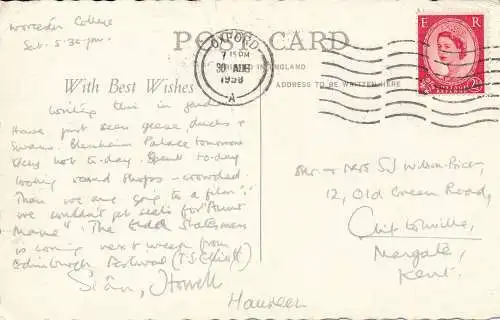 Worcester College
Sat. 5.30 pm.
POST CARD
OXFORD
7 15 PM
30 AUG
1958
-A-
IN ENGLAND
With Best Wishes
ADDRESS TO BE WRITTEN HERE
E R
POSTAGE REVENUE
2½
Writing this in garden
Have just seen geese, ducks &
swans. Blenheim Palace tomorrow
Very hot to-day. Spent to-day
looking round shops – crowded.
Then we are going to a film.
We wouldn't get seats for "Auntie
Mame". "The Elder Statesman
is coming next week (from
Edinburgh Festival (T.S. Elliott)
Siân, Howell
Maureen
Mr. & Mrs S J Wilson-Price,
12, Old Green Road,
Cliftonville,
Margate,
Kent.